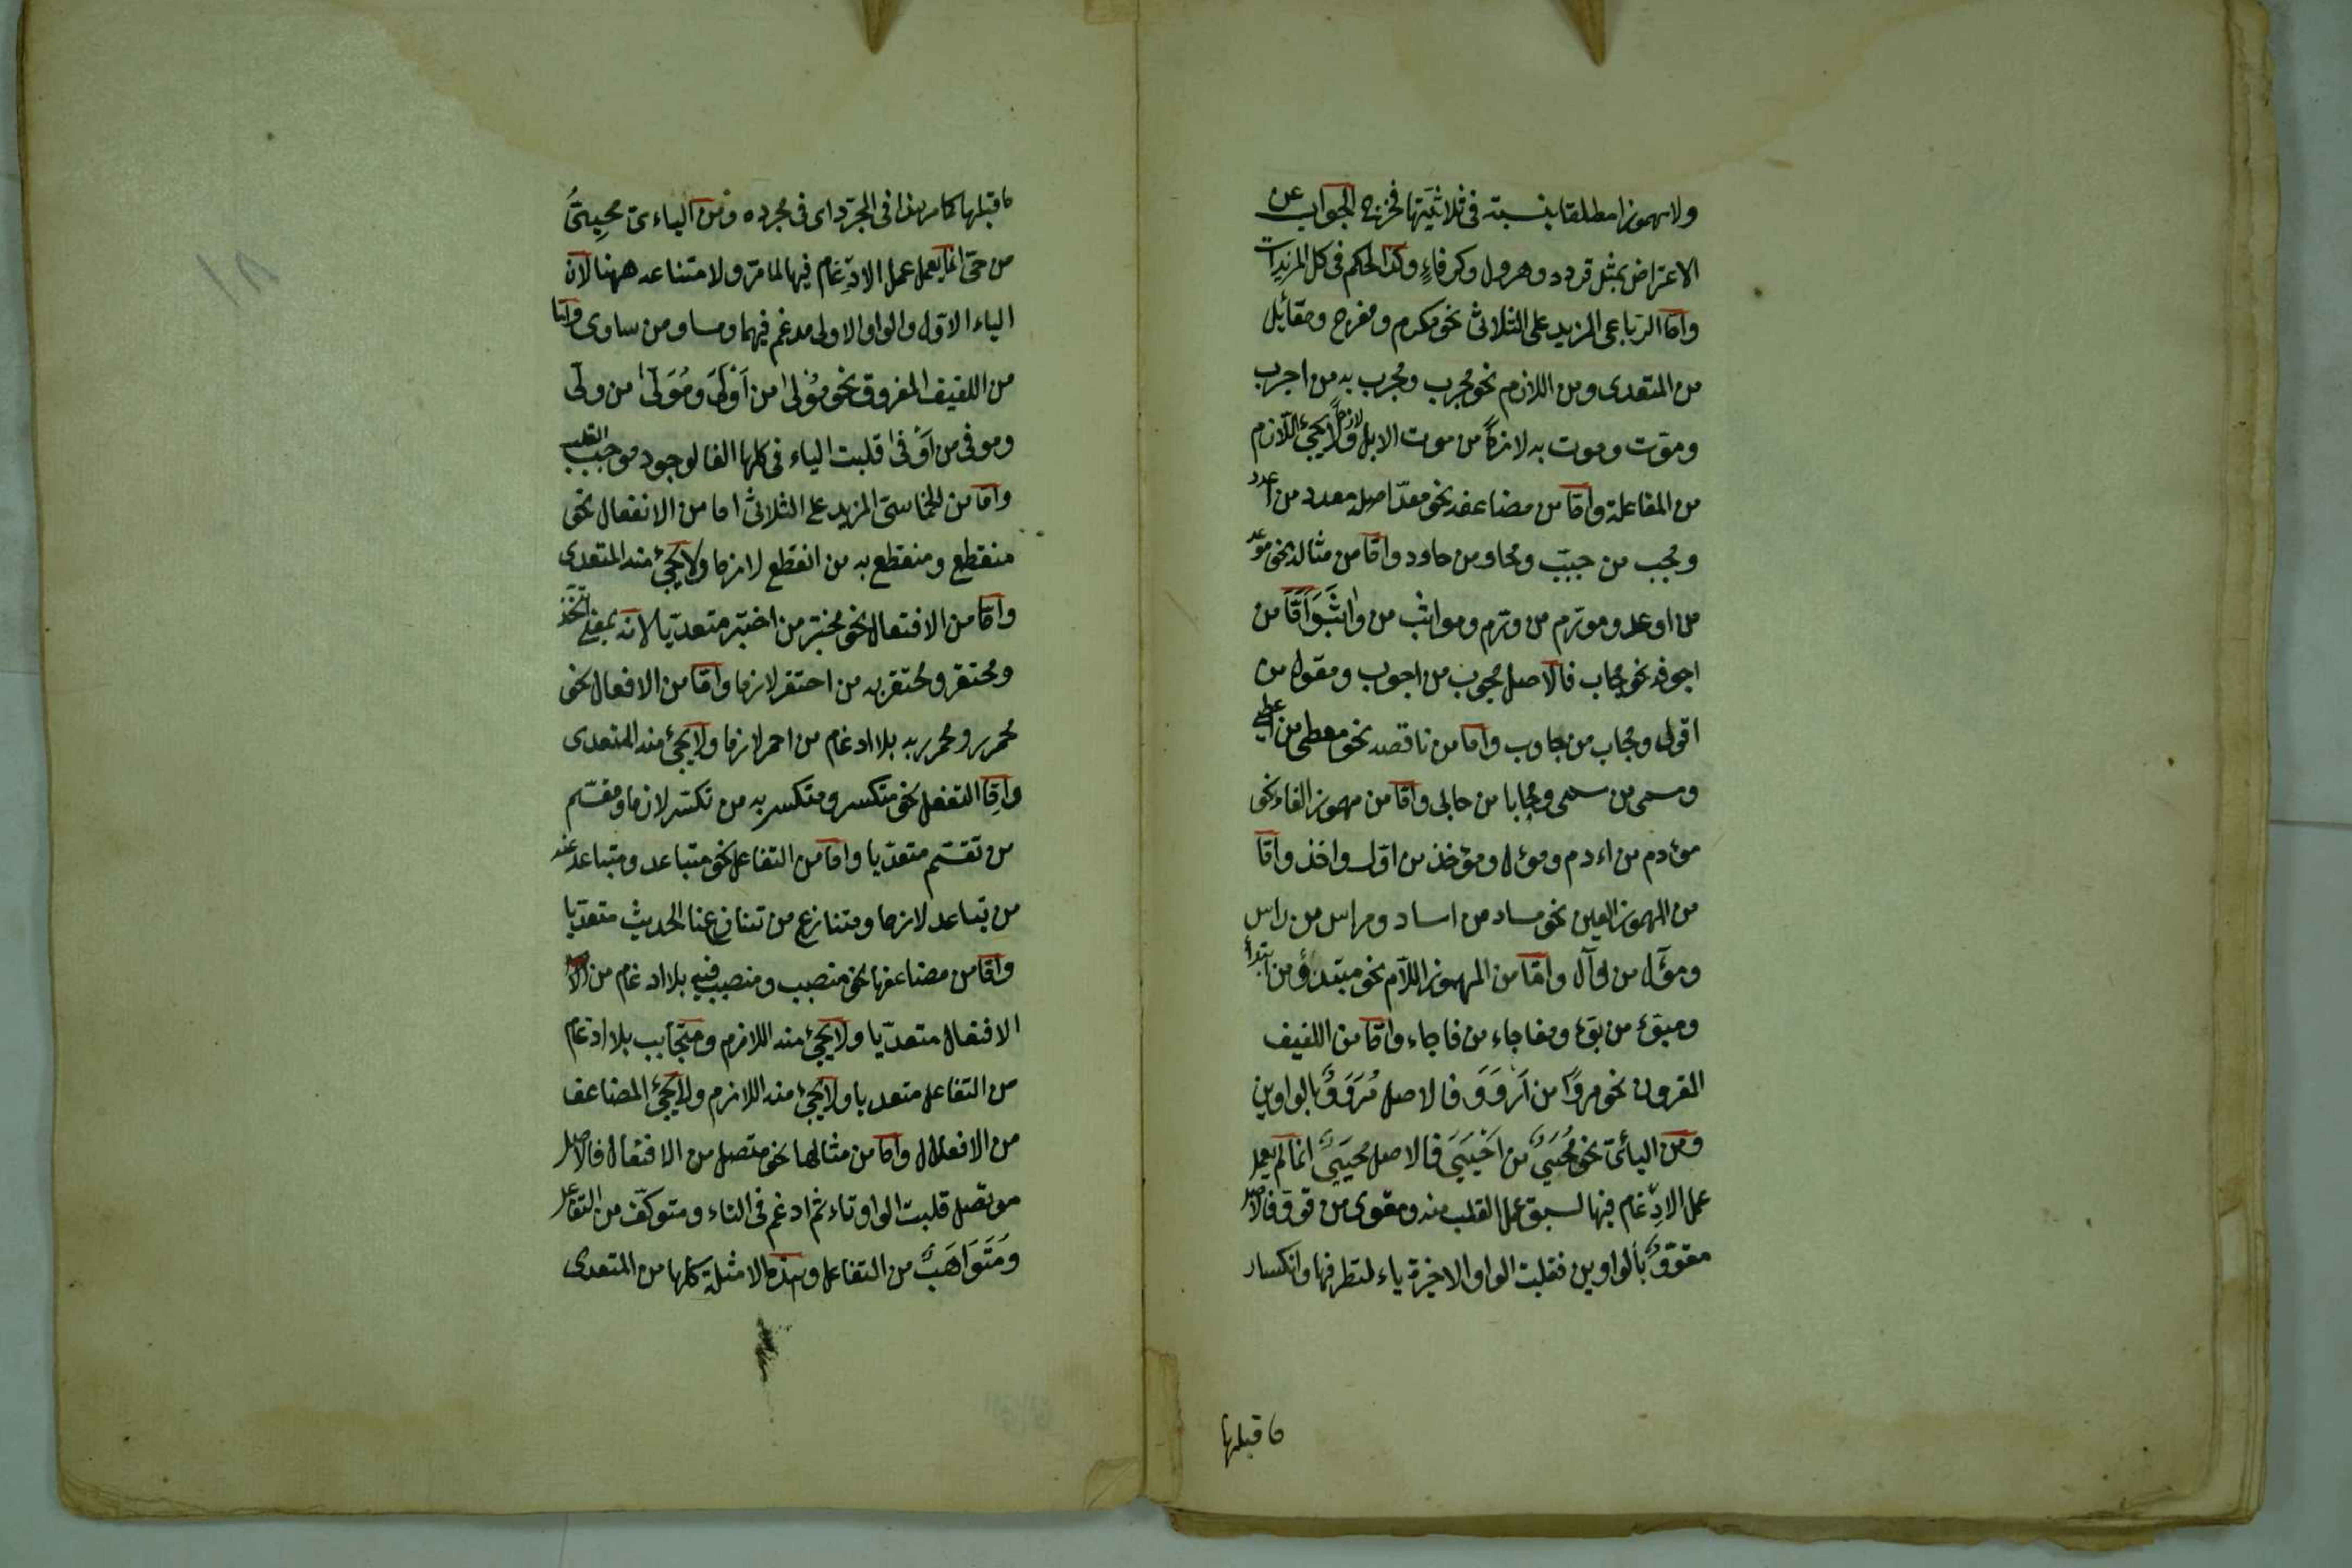 ولا مهموزا مطلقا بنسبته فى ثلاثيتها فخرج الجواب عن
الاعتراض بمثل قردد وهرول وكرفاء وكذا الحكم فى كل المزيدات
واما الرباعى المزيد على الثلاثى نحو مكرم ومفرح ومقاتل
من المتعدى ومن اللازم نحو مجرب ومجرب به من اجرب
وموّت وموت به لازما من موت الابل ولا يجئ اللازم
من المفاعلة واما من مضاعفه نحو معدّ اصله معدد من اعدد
ومجب من جبب ومحاو من حاود واما من مثاله نحو موعد
من اوعد ومورّم من ورّم ومواثب من واثب واما من
اجوفه نحو مجاب فالاصل مجوب من اجوب ومقول من
اقول ومجاب من جاوب واما من ناقصه نحو معطى من اعطى
وسمى من سمى ومحابا من حابى واما من مهموز الفاء نحو
مؤدم من اءدم وموئل ومؤخذ من اول واخذ واما
من المهموز العين نحو مساد من اساد ومراس من راس
ومؤل من لوآل واما من المهموز اللام نحو مبتدؤ من ابتدأ
ومبقئ من بقئ ومفاجاء من فاجاء واما من اللفيف
المقرون نحو مروا من اَرْوَوَ فالاصل مُرَوَوٌ بالواوين
ومن اليائى نحو مُحْيَىٌ من اَحْيَيَ فالاصل محيىٌ انما لم يعمل
عمل الادغام فيها لسبق عمل القلب منه ومقوى من قوو فالاصل
مقووٌ بالواوين فقلبت الواو الاخيرة ياء لتطرفها وانكسار
ماقبلها
ماقبلها كما مر هذا فى المجرّد اى فى مجرده ومن الياءى محيىٌ
من حىّ انما يعمل عمل الادغام فيها لما مرّ ولامتناعه ههنا لان
الياء الاول والواو الاولى مدغم فيهما ومساو من ساوى واما
من اللفيف المفروق نحو مؤلى من اَوْلَىَ ومُوَلّى من ولّى
وموفى من اَوْفى قلبت الياء فى كلها الفا لوجود موجب القلب
واما من الخماسى المزيد على الثلاثى اما من الانفعال نحو
منقطع ومنقطع به من انقطع لازما ولا يجئ منه المتعدى
واما من الافتعال نحو مختبر من اختبر متعديا لانه بمعنى اتخذ
ومحتقر ومحتقر به من احتقر لازما واما من الافعال نحو
محمرر ومحمرر به بلا ادغام من احمر لازما ولا يجئ منه المتعدى
واما التفعل نحو متكسر ومتكسر به من تكسّر لازما ومقسّم
من تقسّم متعديا واما من التفاعل نحو متباعد ومتباعد عنه
من تباعد لازما ومتنازع من تنازعنا الحديث متعديا
واما من مضاعفها نحو منصبب ومنصبب فيه بلا ادغام من
الافتعال متعديا ولا يجئ منه اللازم ومتجابب بلا ادغام
من التفاعل متعديا ولا يجئ منه اللازم ولا يجئ المضاعف
من الافعلال واما من مثالها نحو متصل من الافتعال فالاصل
موتصل قلبت الواو تاء ثم ادغم فى التاء ومتوكّف من التفاعل
وَمُتَوَاهَبٌ من التفاعل وهذه الامثلة كلها من المتعدى
١٨